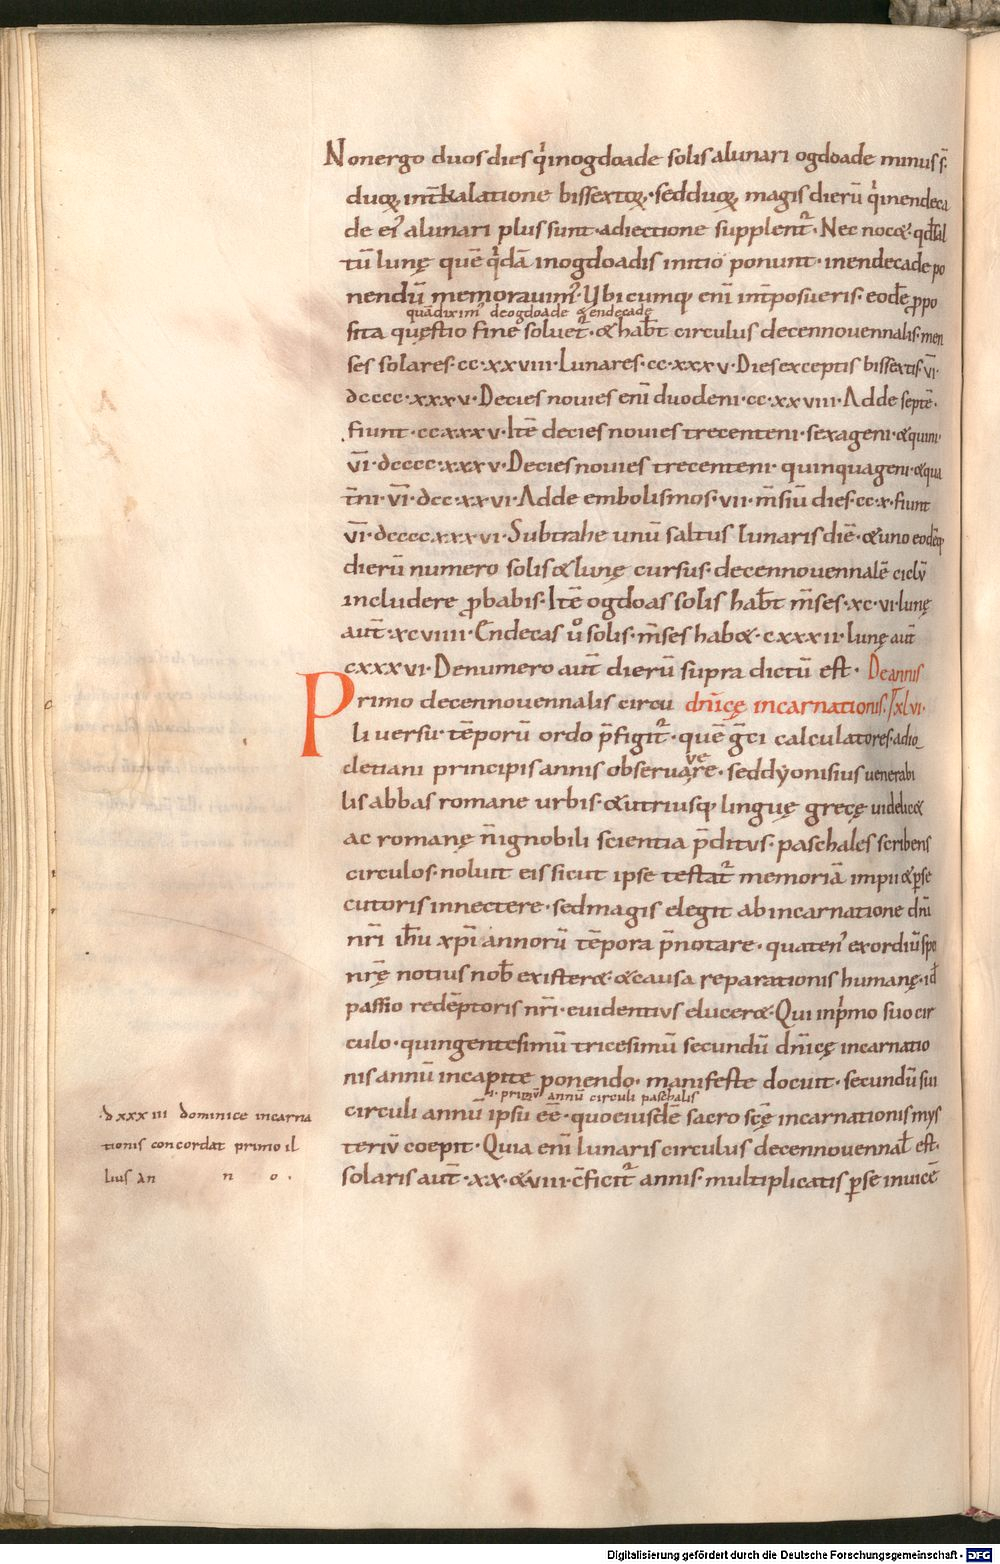 Non ergo duos dies q̇ inogdoade solis alunari ogdoade minus s̄.
duoꝝ int̄kalatione bissextoꝝ· sed duoꝝ magis dierū q̇ inendeca
de ei᾽ alunari plus sunt· adiectione supplent᾽. Nec noc&· qđ sal
tū lunę quē q̇dā inogdoadis initio ponunt· inendecade po
nendū memorauim᾽. Vbicumq; eni̅ int̄posueris· eodē ꝓpo
quā dixim᾽ de ogdoade & endecade
sita quęstio fine soluet᾽. & hab̄t circulus decennouennalis· men
ses solares· cc·xxviii· Lunares· cc·xxxv· Dies exceptis bissextis· v̅i̅·
dcccc·xxxv· Decies nouies eni̅ duodeni· cc·xxviii· Adde septē·
fiunt· ccxxxv· Itē decies nouies trecenteni· sexageni· & quini·
v̅i̅· dcccc·xxxv· Decies nouies trecenteni· quinquageni· & qua
t̄ni· v̅i̅· dcc·xxvi· Adde embolismos· vii· m̄siū dies· cc·x· fiunt
v̅i̅· dcccc·xxxvi· Subtrahe unū saltus lunaris diē· & uno eodēq;
dierū numero solis & lunę cursus· decennouennalē ciclū
includere ꝓbabis· Itē ogdoas solis hab̄t m̄ses· xc·vi· lunę
aut̄· xcviiii· Endecas ů solis· m̄ses hab&· cxxxii· lunę aut̄
cxxxvi· De numero aut̄ dierū supra dictū est· De annis
Primo decennouennalis circu dn̄icę incarnationis. xlvi·
li uersu· tēporū ordo p̄figit᾽· quē ḡci calculatores· adio
ve
cletiani principis annis obseruare· sed dyonisius uenerabi
lis abbas romane urbis· & utriusq; linguę grecę uidelic&
ac romanę n̄ ignobili scientia p̄ditus· paschales scribens
circulos· noluit eis sicut ipse testat᾽ memoriā impii & ꝑse
cutoris innectere· sed magis elegit ab incarnatione dn̄i
nr̄i ih̄u xp̄i annorū tēpora p̄notare· quaten᾽ exordiū spei
nr̄ę notius nob̄ exister&· & causa reparationis humanę· id̄
passio redēptoris nr̄i· euidentius elucer&· Qui inp̊mo suo cir
culo· quingentesimū tricesimū secundū dn̄icę incarnatio
nis annū incapite ponendo· manifeste docuit· secundū sui
i· primū annū circuli paschalis
circuli annū ipsū eē· quo eiusdē sacro scē incarnationis mys
teriū coepit· Quia eni̅ lunaris circulus decennouennal̄ est·
solaris aut̄· xx·&viii· c̄ficit᾽ annis· multiplicatis ꝑse inuicē
·dxxxiii dominice incarna
tionis concordat primo il
lius an n o·
Digitalisierung gefördert durch die Deutsche Forschungsgemeinschaft - DFG